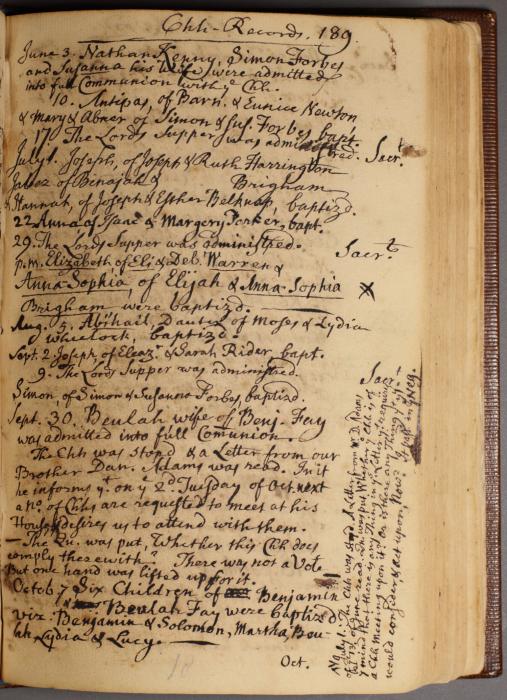 Chh-Records. 189
June 3. Nathan Kenny, Simon Forbes
and Susanna his Wife, were admitted
into full Communion with ye Chh.
10. Antipas, of Barn. & Eunice Newton
& Mary & Abner of Simon & Sus. Forbes bapt.
17. The Lords Supper was administred. Sacrt.
July 1. Joseph, of Joseph & Ruth Harrington
Jabez of Benajah & Brigham
Hannah, of Joseph & Esther Belknap, baptizd.
22. Anna of Isaac & Margery Parker, bapt.
29. The Lords Supper was administred. Sacrt.
p.m. Elizabeth of Eli & Deb. Warren &
Anna-Sophia, of Elijah & Anna-Sophia
Brigham were baptizd.
Aug. 5. Abihail, Dautr. of Moses & Lydia
Wheelock, baptizd
Sept. 2. Joseph, of Eleazr. & Sarah Rider, bapt.
9. The Lords Supper was administred. Sac
Simon, of Simon & Susanna Forbes, baptizd.
Sept. 30. Beulah wife of Benj. Fay
was admitted into full Comunion.
The Chh was stopd & a Letter from our
Brother Dan. Adams was read. In it
he informs yt. on ye 2d Tuesday of Oct. next
a No. of Chhs are requested to meet at his
House, & desires us to attend with them.
— The Qu. was put, Whether this Chh does
comply therewith? There was not a Vote
But one hand was lifted up for it.
Octob. 7 Six Children of Benjamin
& Beulah Fay were baptizd
viz. Benjamin & Solomon, Martha, Beu-
lah, Lydia & Lucy.
Oct.
July 1. The Chh was stopd. A Letter from Mr. D. Adams
of June read. was put, Whether ye Chh is of
ye mind that there is any Thing in ye Letter yt requires
a Chh Meeting upon it? Or is there any Thing yt ye
would consider & act upon, Now?
It past in ye Neg.